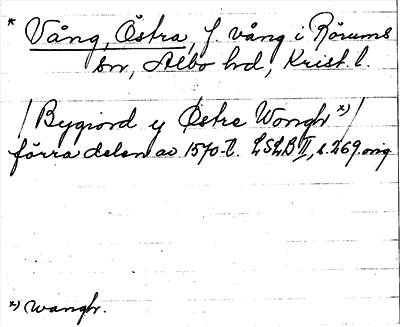 * Vång, Östra, f. vång i Rörums
sn, Albo hd, Krist. l.
/ Bygiord y Östre Wongh *) /
förra delen av 1570-t. LSLB II, s. 269. orig
*) wanghr.